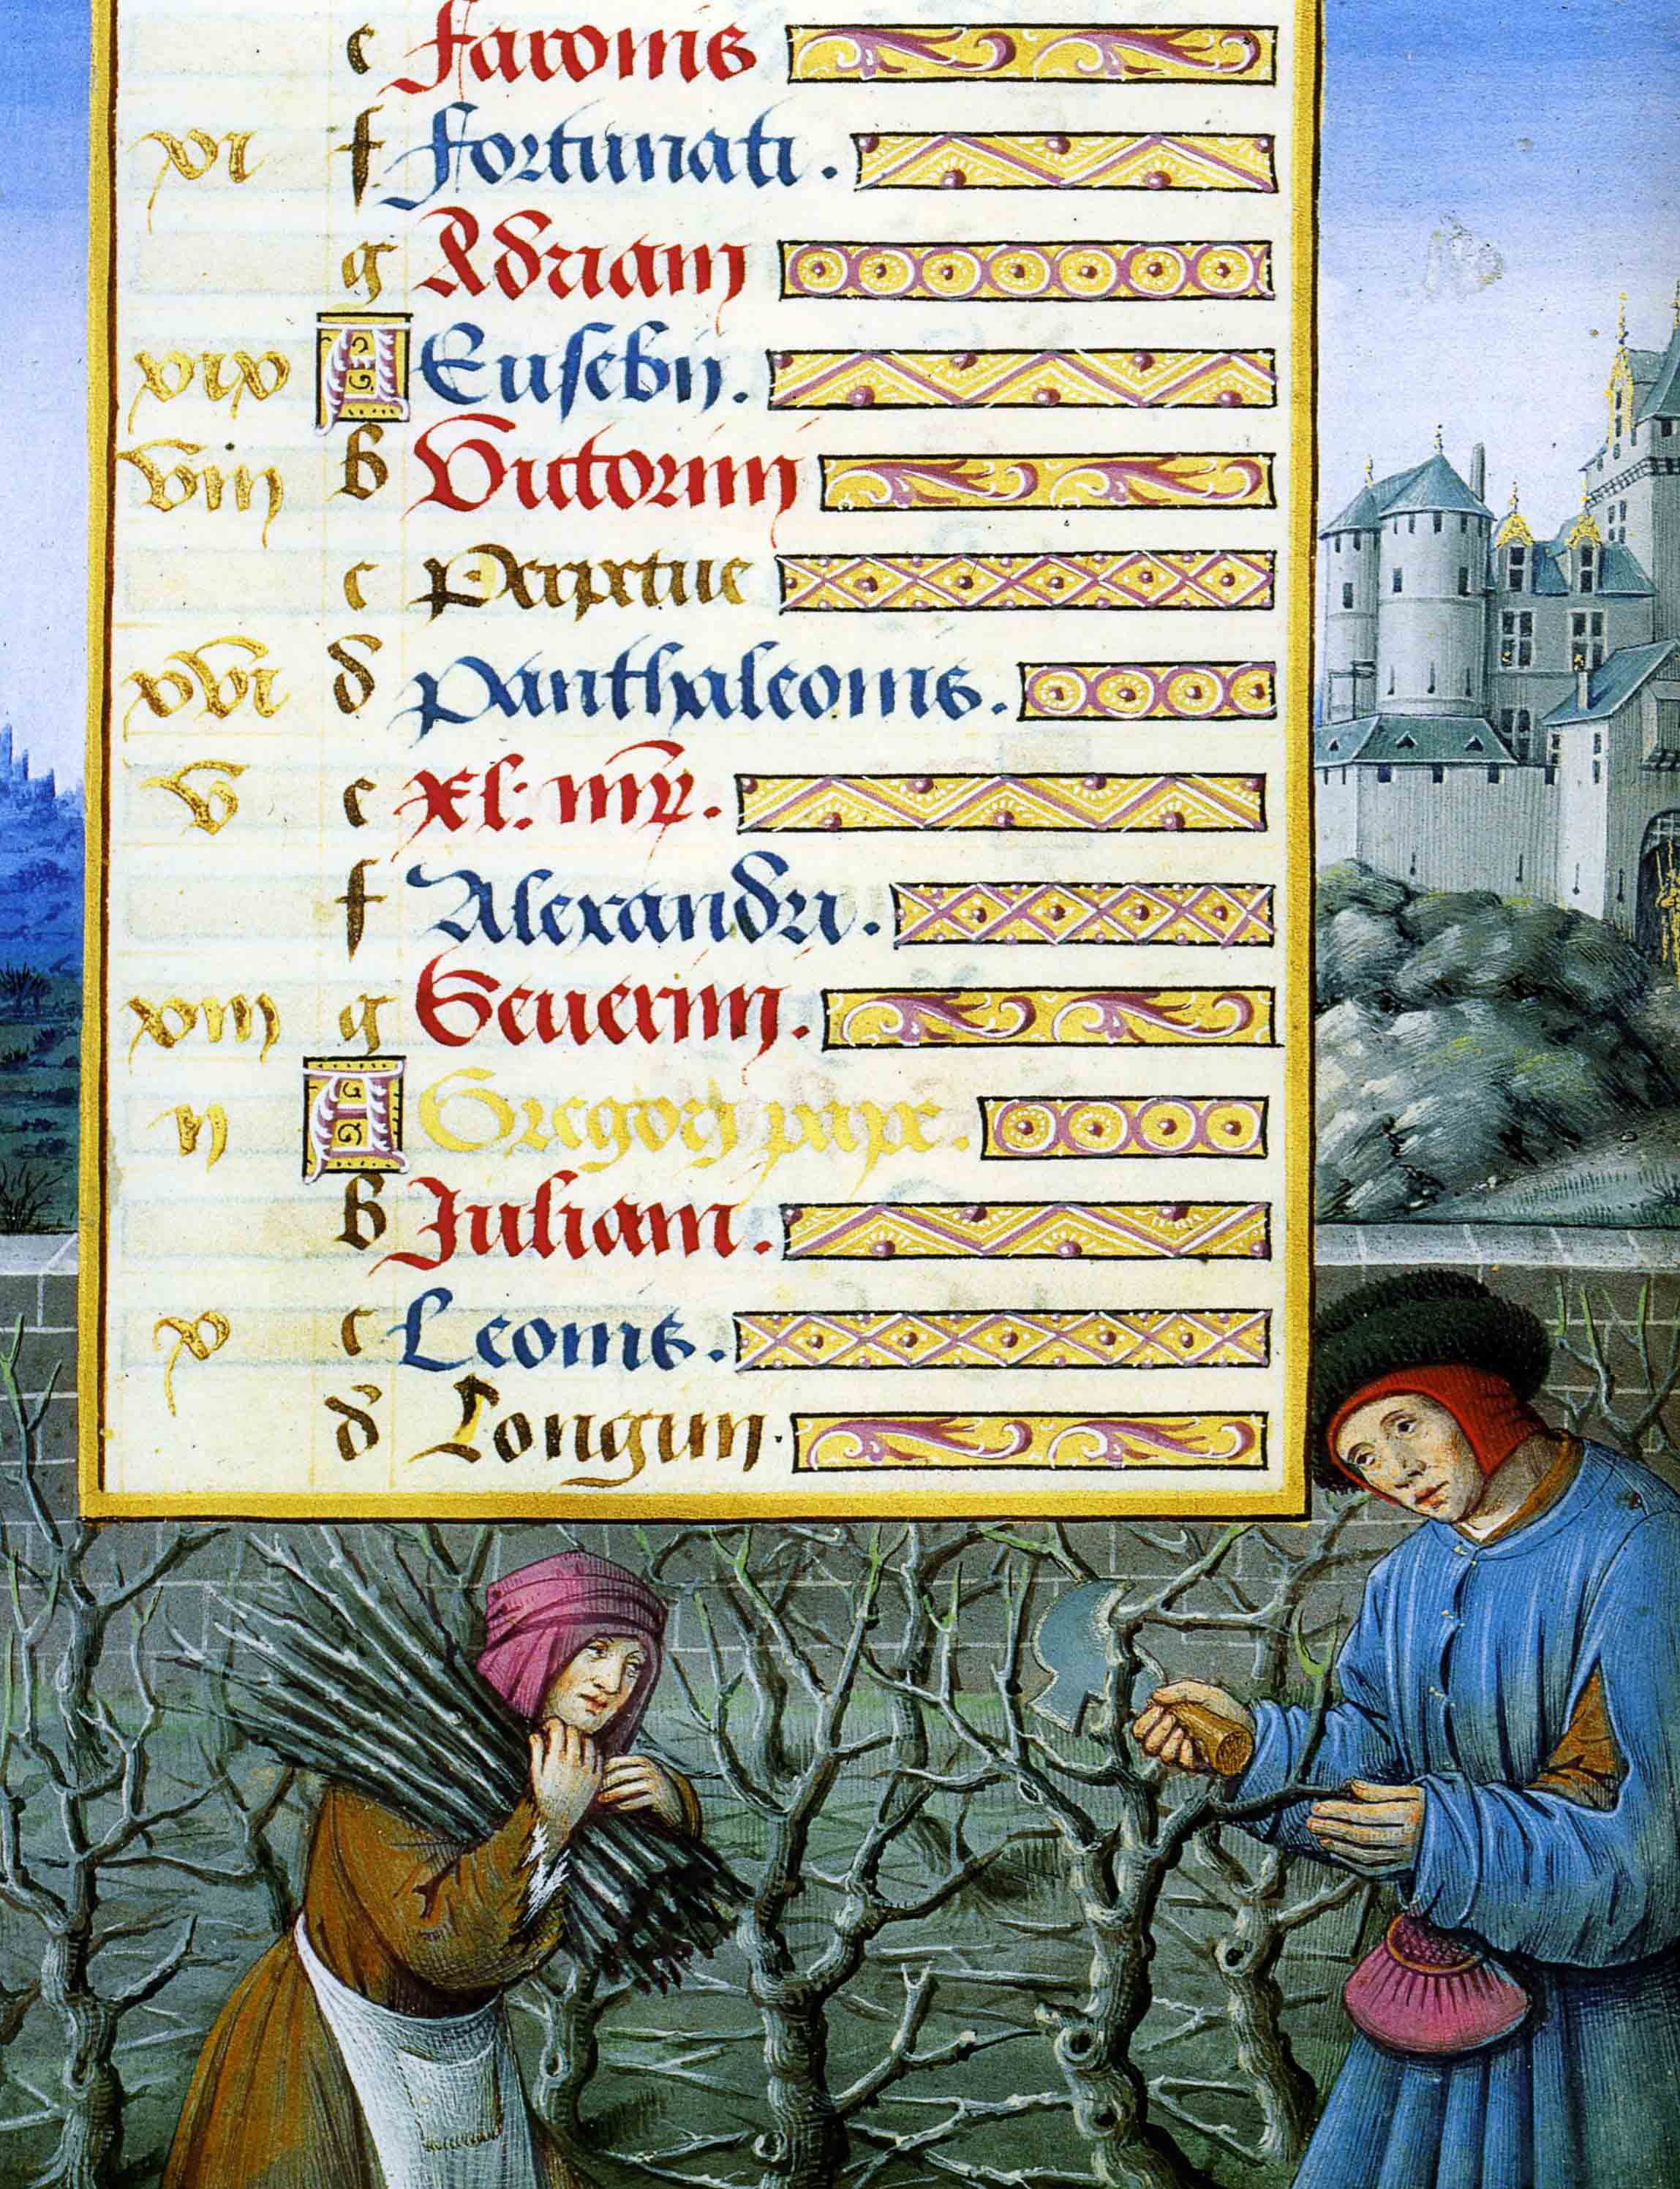 c Faronis
xi f Fortunati.
g Adriani
xix A Eusebij.
viij b Victorinj
c Perpetue
xvi d Panthaleonis.
v e Xl: mr̃.
f Alexandri.
xiij g Seuerinj.
ij A Gregorij pape.
b Juliani.
x c Leonis.
d Longini.